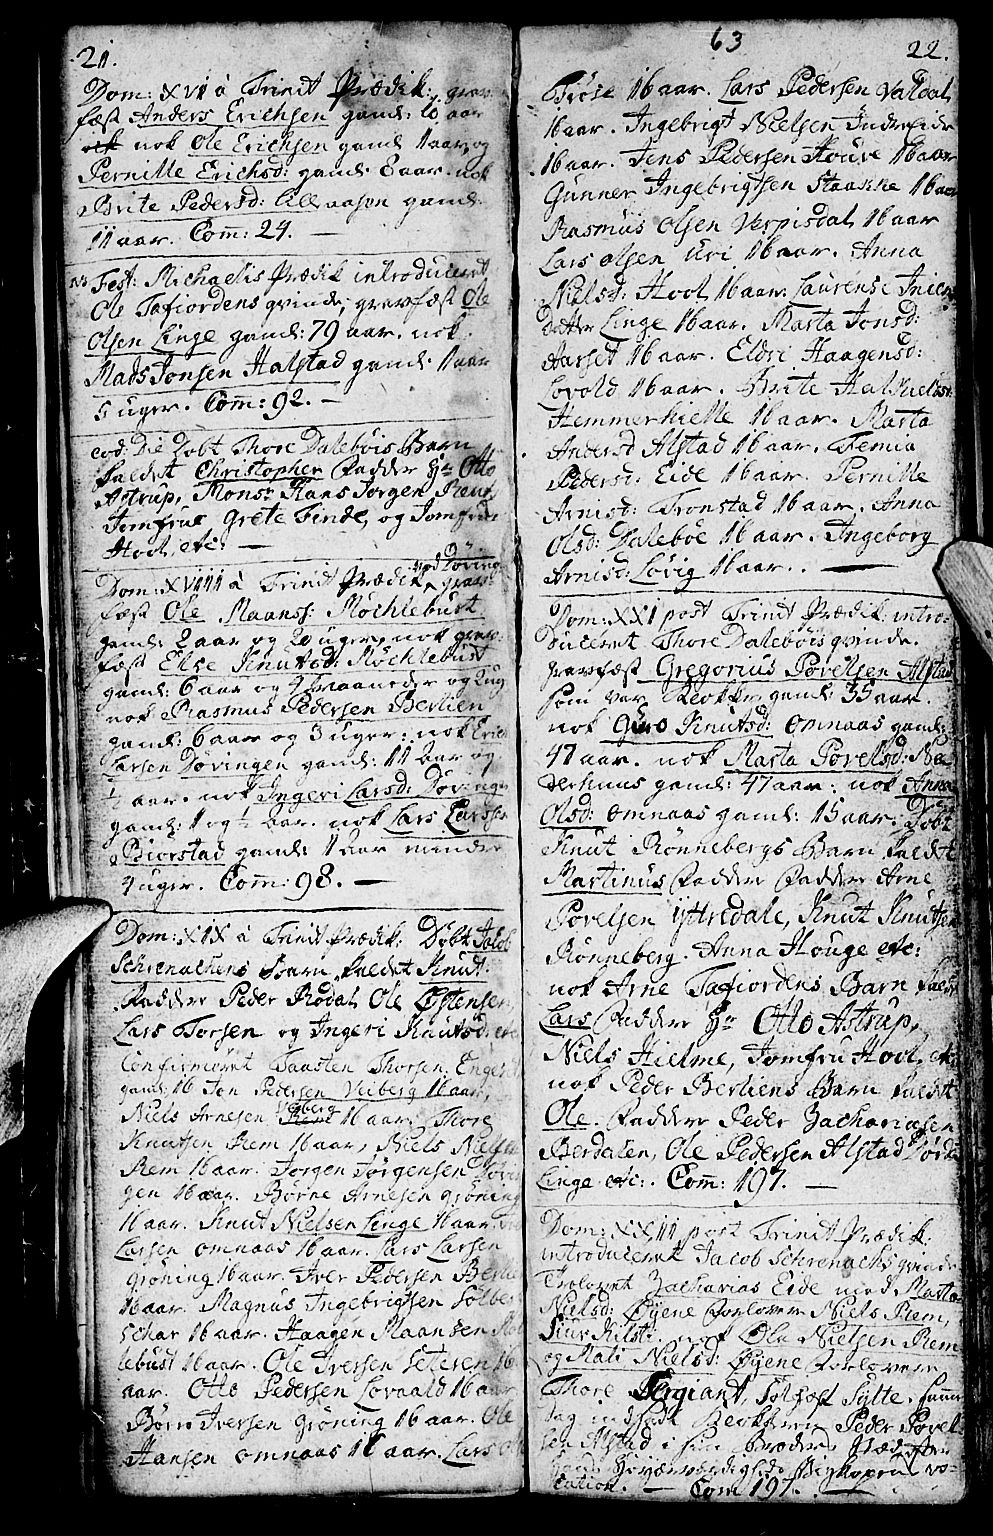 21.
Dom: XVI â Trinit Prædik: grav
fæst Anders Erichsen gaml: 10 aar
nok Ole Erichsen gaml 1 aar og
Pernille Erichsd: gaml: 8 aar. nok
Brite Pedersd: Lillaasen gaml:
11 aar. Com: 24. —
Fest: Michaelis Prædik introduceret
Ole Tafiordens qvinde, gravfæst Ole
Olsen Linge gaml: 79 aar. nok
Mads Jonsen Halstad gaml: 1 aar
5 uger. Com: 92. —
eod: Die Døbt Thore Dalebøis Barn
kaldet Christopher Faddere Hr Otto
Astrup, Monsr Hans Jørgen
Jomfrue Grete Finde, og Jomfrue
Hoel, etc: —
ved Døving
Dom: XVIII â Trinit Prædik grav
fæst Ole Maanss: Møchlebust
gaml: 2 aar og 20 uger, nok grav
fæst Else Knutsd: Møchlebust
gaml: 6 aar og 9 maaneder og
nok Rasmus Pedersen Berlien
gaml: 6 aar og 3 uger: nok Erich
Larsen Døvingen gaml: 11 aar og
½ aar. nok Ingeri Larsd: Døvinge
gaml: 1 og ½ aar. nok Lars Larssen
Biorstad gaml: 1 aar minder
4 uger. Com: 98. —
Dom: XIX â Trinit Prædik: Døbt Jacob
Schrenachens Barn kaldet Knut:
Faddere Peder Rødal, Ole Østensen
Lars Torsen og Ingeri Knutsd: etc
Confirmeret Taasten Thorsen
gaml 16 Jon Pedersen Veiberg 16 aar,
Veiberg
Niels Arnesen 16 aar. Thore
Knutsen Rem 16 aar, Niels Nielsen
Rem 16 aar. Jørgen Jørgensen Døvin
gen 16 aar. Børne Arnesen Grøning
16 aar. Knut Nielsen Linge 16 aar.
Larsen Omnaas 16 aar. Lars Larsen
Grøning 16 aar. Iver Pedersen Berlie
16 aar. Magnus Ingebrigtsen Solberg
schar 16 aar. Haagen Maansen Møch
lebust 16 aar. Ole Iversen Seteren 16
aar. Otto Pedersen Lovaald 16 aar
Børn Iversen Grøning 16 aar. Ole
Hansen Omnaas 16 aar. Lars
63
22.
16 aar. Lars Pedersen Valdal
16 aar. Ingebrigt Nielsen Indreeide
16 aar. Jens Pedersen Houve 16 aar
Gunner Ingebrigtsen Staakke 16 aar
Rasmus Olsen Verpisdal 16 aar
Lars Olsen Uri 16 aar. Anna
Nielsd: Hoel 16 aar. Laurense
Datter Linge 16 aar. Marta Jonsd:
Aarset 16 aar. Eldri Haagensd:
Lovold 16 aar. Brite Halkielsd:
Hemmerkielle 16 aar. Marta
Andersd Alstad 16 aar. Femia
Pedersd: Eide 16 aar. Pernille
Arnisd: Tronstad 16 aar. Anna
Olsd: Dalebøe 16 aar. Ingeborg
Arnisd: Løvig 16 aar. —
Dom: XXI post Trinit Prædik: intro:
duceret Thore Dalebøis qvinde.
Gravfæst Gregorius Povelsen Alstad
som var Klokker, gaml: 35 aar.
nok Guro Knutsd: Omnaas gaml:
47 aar. nok Marta Povelsd: Ne
derhuus gaml: 47 aar. nok Anna
Olsd: Omnaas gaml: 15 aar. Døbt
Knut Rønnebergs Barn kaldet
Martinus Faddere Faddere Arne
Povelsen Yttredale, Knut Knutsen
Rønneberg. Anna Houge etc:
nok Arne Tafiordens Barn kaldet
Lars Faddere Hr Otto Astrup,
Niels Hielme, Jomfru Hoel, etc
nok Peder Berliens Barn kaldet
Ole. Faddere Peder Zachariasen
Berdalen, Ole Pedersen Alstad
Linge etc: Com: 197. —
Dom: XXIII post Trinit Prædik:
introduceret Jacob Schrenachs qvinde
Trolovet Zacharias Eide med Marta
Nielsd: Øyene Forlovere Niels Rem,
Siur Kilsti. nok Ole Nielsen Rem
og Mali Nielsd: Øyene Forlovere
Thore Sergiant, Sylte. samme
dag indsatt Klokkeren Peder Povel
sen Alstad i sin Broders
Høyærværdighed Biskopens vo-
cation. — Com 197.